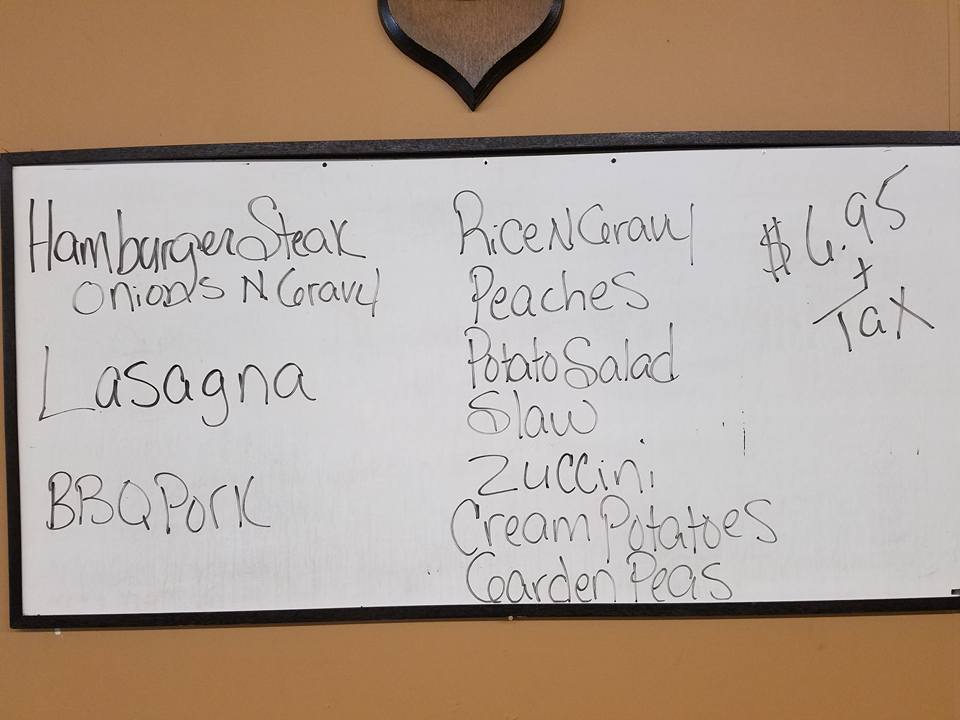 Hamburger Steak
Onions N Gravy
Lasagna
BBQ Pork
Rice N Gravy
Peaches
Potato Salad
Slaw
Zuccini
Cream Potatoes
Garden Peas
$6.95
+
Tax